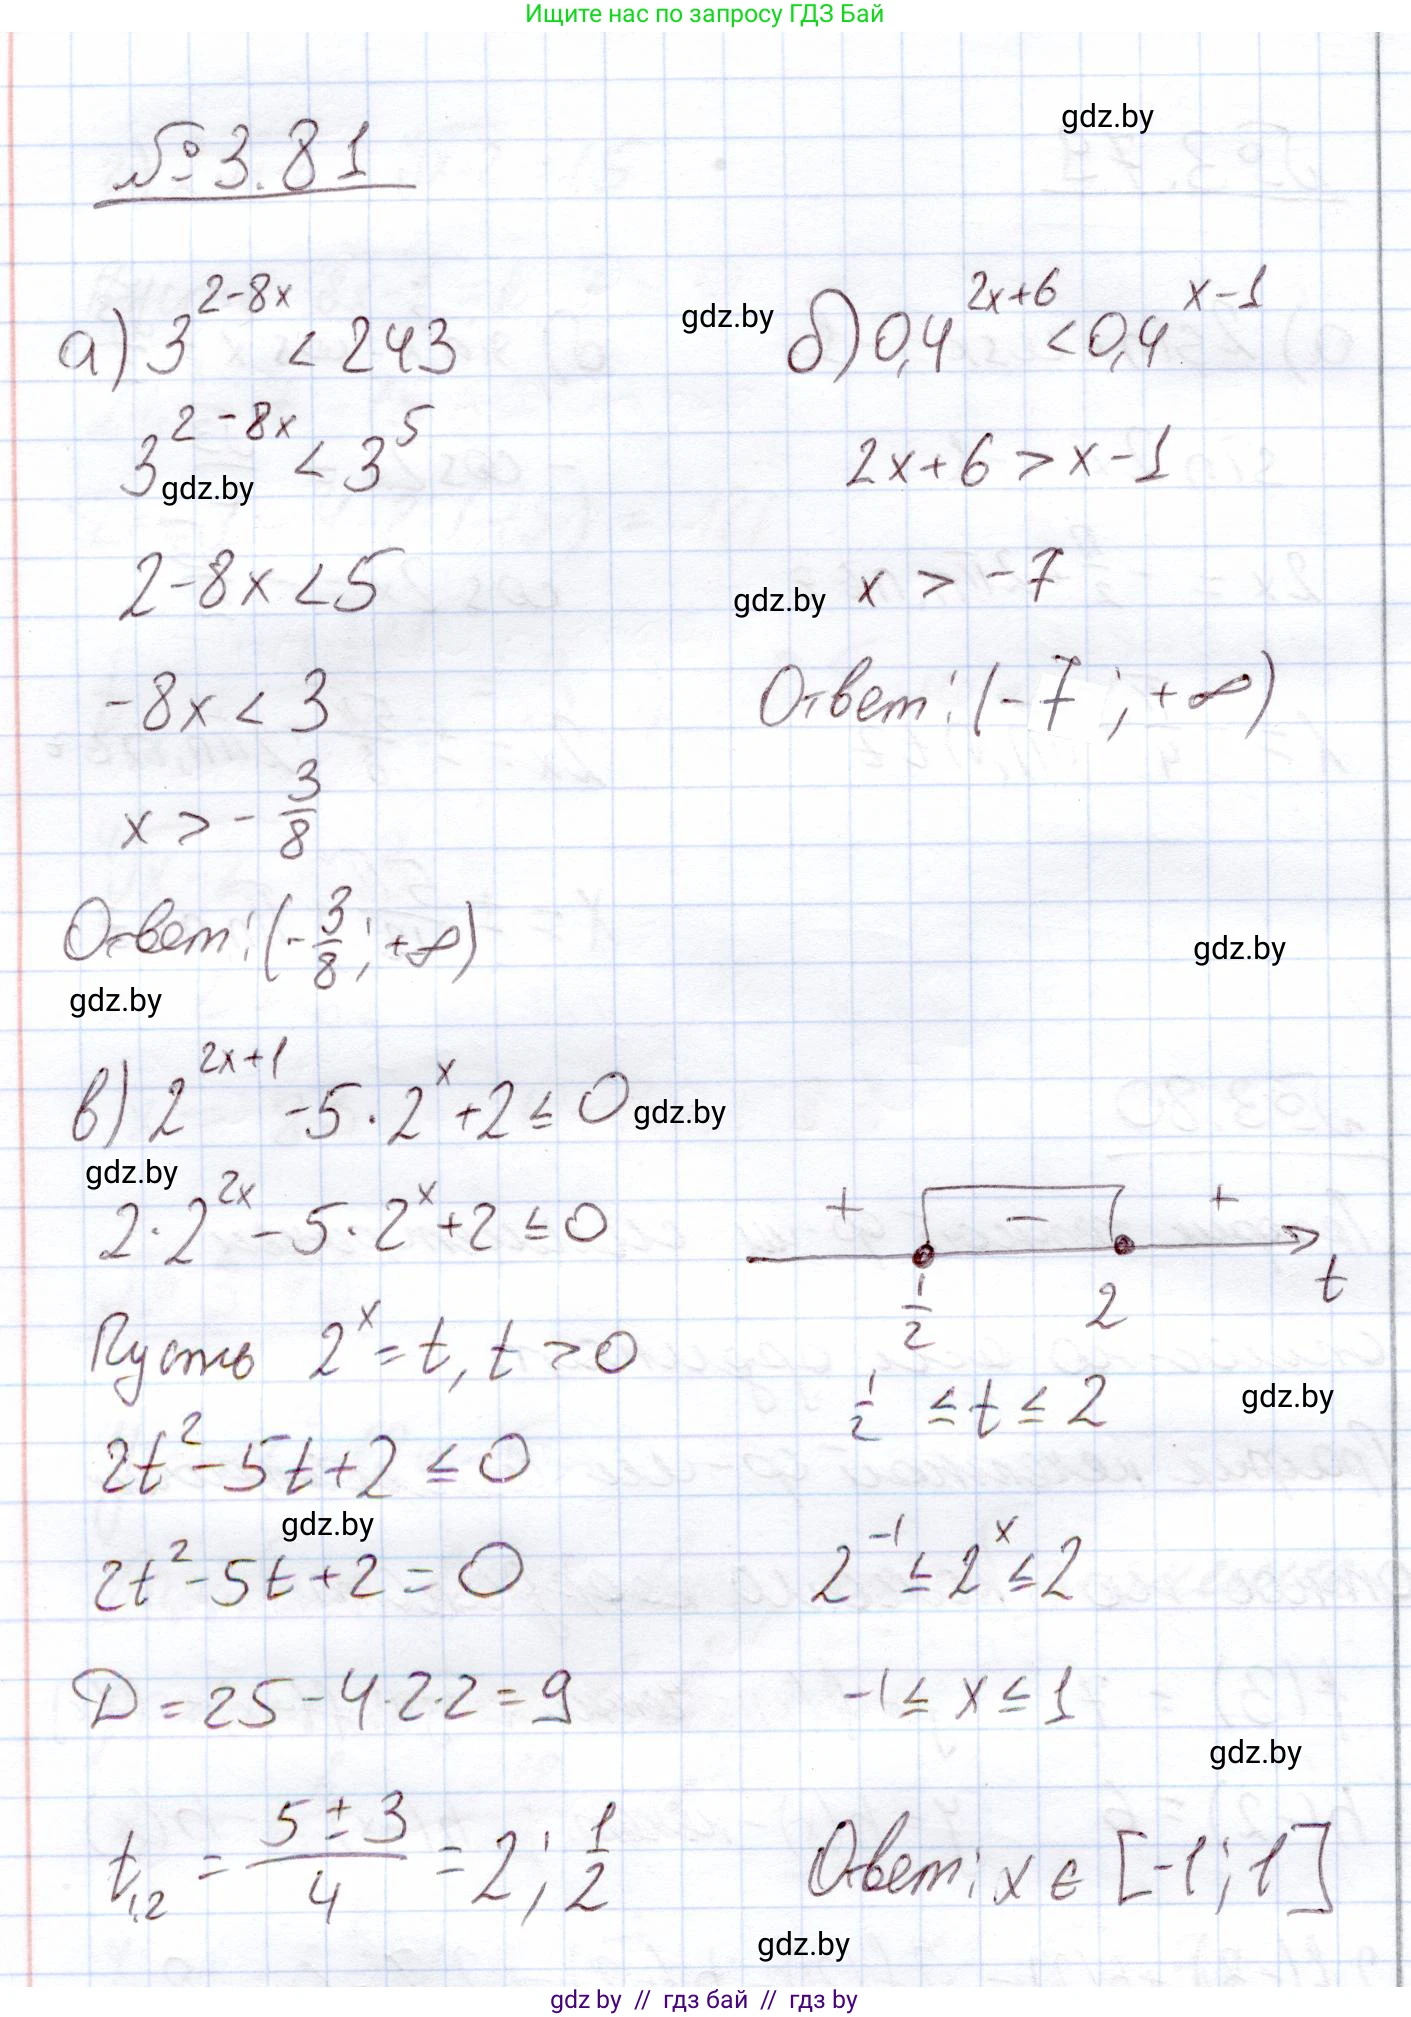 Ищите нас по запросу ГДЗ Бай
gdz.by
№ 3.81
а) 3^(2-8x) < 243
3^(2-8x) < 3^5
gdz.by
2-8x < 5
-8x < 3
x > -3/8
Ответ: (-3/8; +∞)
gdz.by
gdz.by
б) 0,4^(2x+6) < 0,4^(x-1)
2x+6 > x-1
gdz.by
x > -7
Ответ: (-7; +∞)
gdz.by
в) 2^(2x+1) - 5·2^x + 2 ≤ 0
gdz.by
gdz.by
2·2^(2x) - 5·2^x + 2 ≤ 0
Пусть 2^x = t, t > 0
2t² - 5t + 2 ≤ 0
gdz.by
2t² - 5t + 2 = 0
D = 25 - 4·2·2 = 9
t1,2 = (5 ± 3)/4 = 2; 1/2
+ - +
1/2 2 t
1/2 ≤ t ≤ 2
gdz.by
2^(-1) ≤ 2^x ≤ 2
-1 ≤ x ≤ 1
gdz.by
Ответ: x ∈ [-1; 1]
gdz.by
gdz by // гдз бай // гдз by